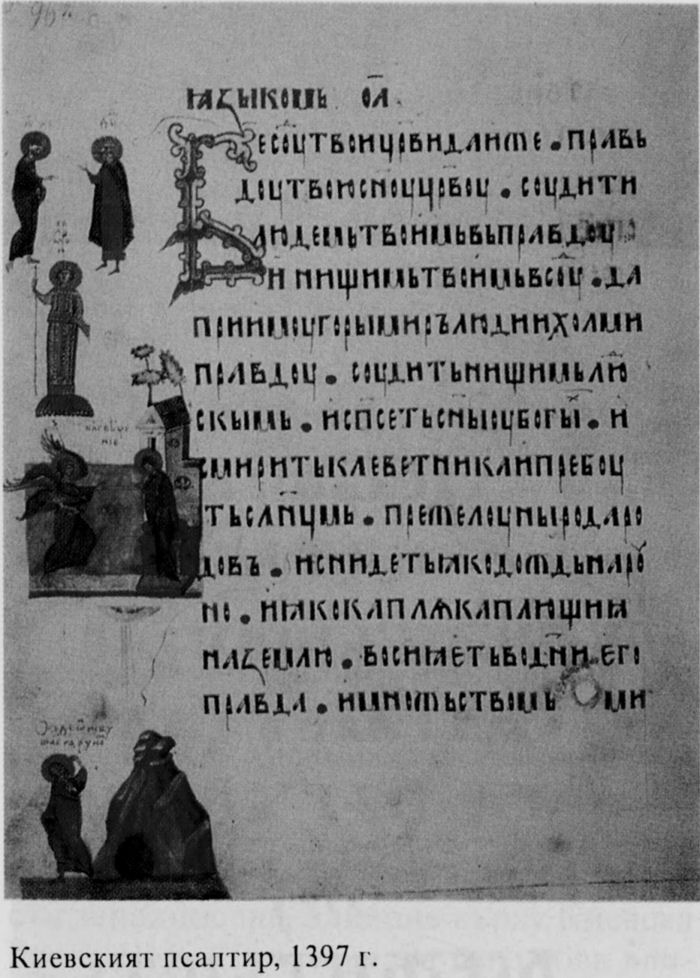 ꙗзыкомь о҃а.
Бесоуⷣтвоицр҃видаиже • правь
доутвоюсн҃оуцр҃воу • соудити
людемьтвоимьвьправдоу
инищимьтвоимьвсоуⷣ • да
приимоугорымирълюдиихолми
правдоу • соудитьнищимьлюⷣ
скымь • исп҃сетьсн҃ыоубогыⷯ • и
смиритьклеветникаипребоу
тьслн҃цмь • прежелоуныродаро
довъ • иснидетьꙗкодождьнароу
но • иꙗкокаплѧкаплющиꙗ
наземлю • восиꙗетьводн҃иего
правда • имножьствомь ми
Киевският псалтир, 1397 г.